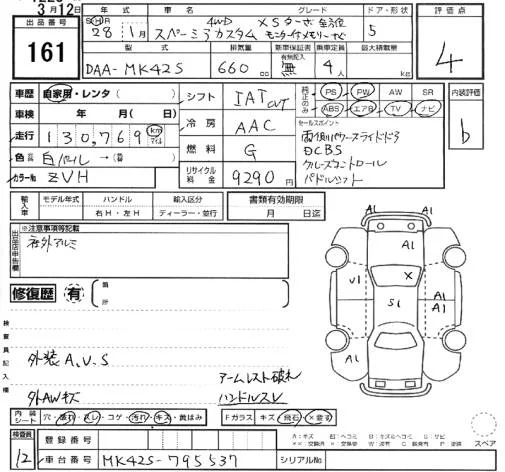 3月12日
出品番号
161
年式 グレード ドア・形状 評価点
S H R
28年 1月 スペーシアカスタム 4WD XSターボ 全方位モニター付メモリーナビ 5 4
型式 排気量 新車保証書 乗車定員 最大積載量
有無記入
DAA-MK42S 660 cc 無 4人 kg
車歴 自家用・レンタ( )
車検 年 月( )日
走行 130,769 km マイル
色 白パール →(替 )
カラーNo ZVH
シフト IAT CVT
冷房 AAC
燃料 G
リサイクル料金 9290円
純正のみ PS PW AW SR
ABS エアB TV ナビ
セールスポイント
両側パワースライドドア
DCBS
クルーズコントロール
パドルシフト
内装評価
b
輸入車 モデル年式 ハンドル 輸入区分
年 右H・左H ディーラー・並行
書類有効期限
月 日迄
出品店申告欄
※注意事項等記載
社外アルミ
修復歴 有 ( 箇所 )
検査員記入欄
外装A,U,S
外AWキズ
アームレスト破れ
ハンドルスレ
A1 A1
A1
U1 X
S1 A1
A1
A1
A1 A1
内装シート 穴・汚れ・スレ・コゲ・汚れ・キズ・黄ばみ
Fガラス キズ・飛石・×要す
スペア
検査員
12
登録番号
車台番号 MK42S-795537
シリアルNo